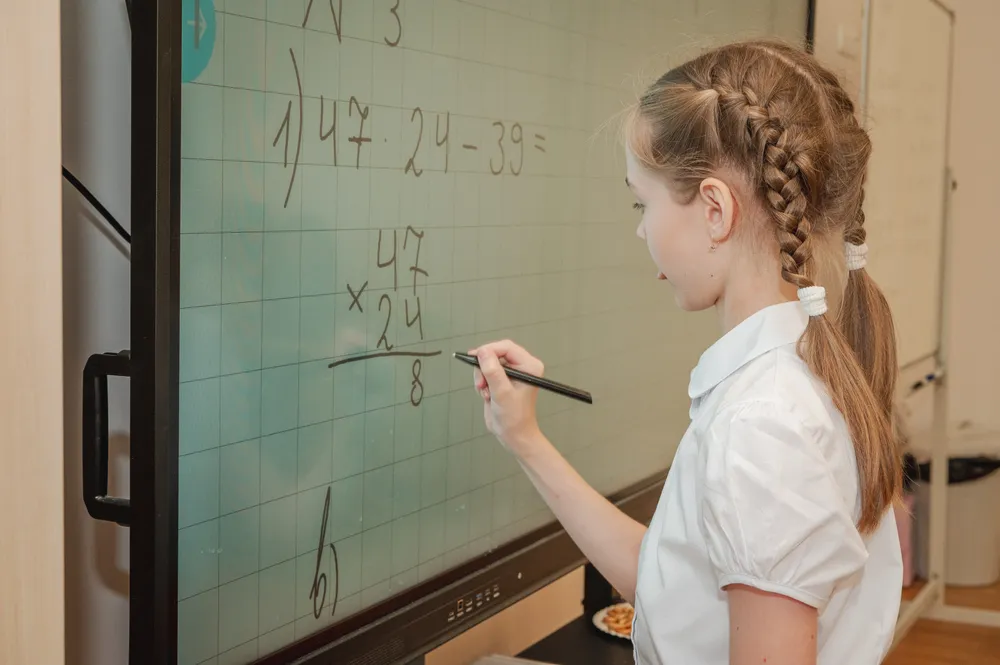 N 3
1) 47 · 24 - 39 =
47
× 24
8
б)